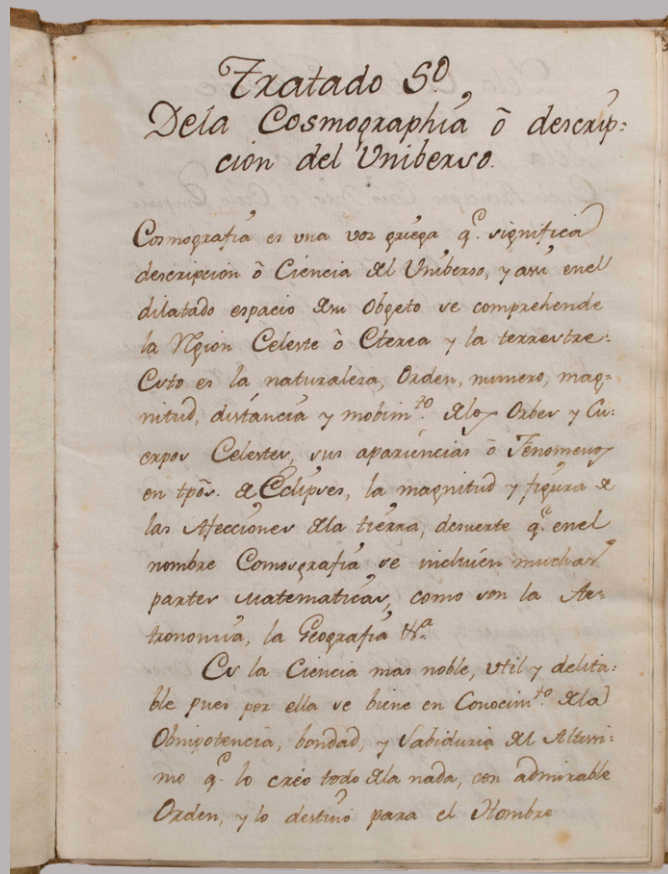 Tratado 5º
Dela Cosmographia ô descrip-
cion del Uniberso.
Cosmografia es una voz griega q.e significa
descripcion ô Ciencia del Uniberso, y assi enel
dilatado espacio desu Obgeto se comprehende
la Region Celeste ô Eterea y la terrestre.
Esto es la naturaleza, Orden, numero, mag-
nitud, distancia y mobim.to delos Orbes y Cu-
erpos Celestes, sus apariencias ô Fenomenos
en tpõs. de Eclipses, la magnitud y figura de
las Afecciones dela tierra, desuerte q.e enel
nombre Comosgrafia se incluien muchas
partes Matematicas, como son la As-
tronomia, la Geografia &.a
Es la Ciencia mas noble, util y delita-
ble pues por ella se biene en Conocim.to dela
Obnipotencia, bondad, y Sabiduria del Altissi-
mo q.e lo creó todo dela nada, con admirable
Orden, y lo destinó para el Hombre